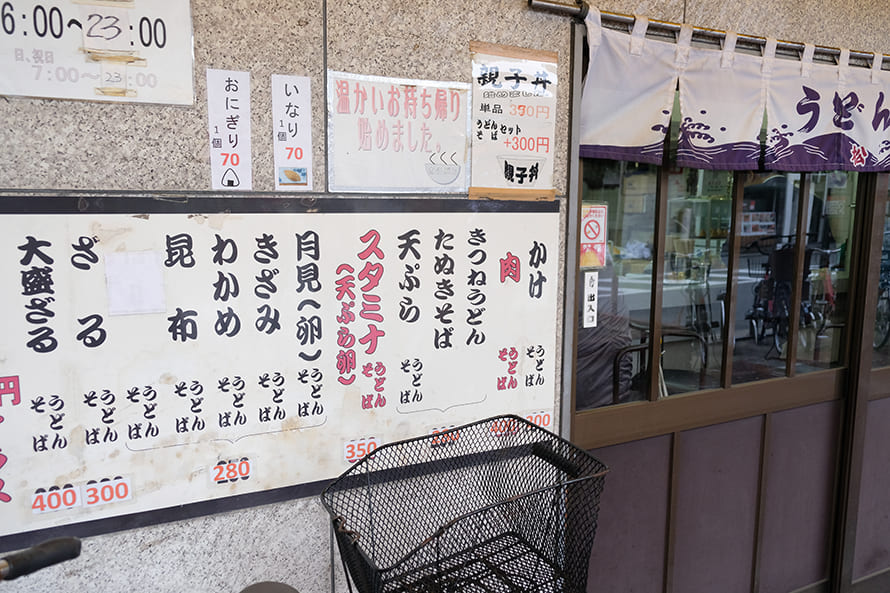 6:00~23:00
日、祝日
7:00~23
おにぎり
1個
70
いなり
1個
70
温かいお持ち帰り
始めました。
親子丼
単品 350円
うどん
そば
セット
+300円
親子丼
うどん
松
出入口
かけ
うどん
そば
200
肉
うどん
そば
400
きつねうどん
たぬきそば
天ぷら
うどん
そば
スタミナ
(天ぷら卵)
うどん
そば
350
月見(卵)
うどん
そば
きざみ
うどん
そば
わかめ
うどん
そば
昆布
うどん
そば
うどん
そば
280
ざる
うどん
そば
300
大盛ざる
うどん
そば
400
円